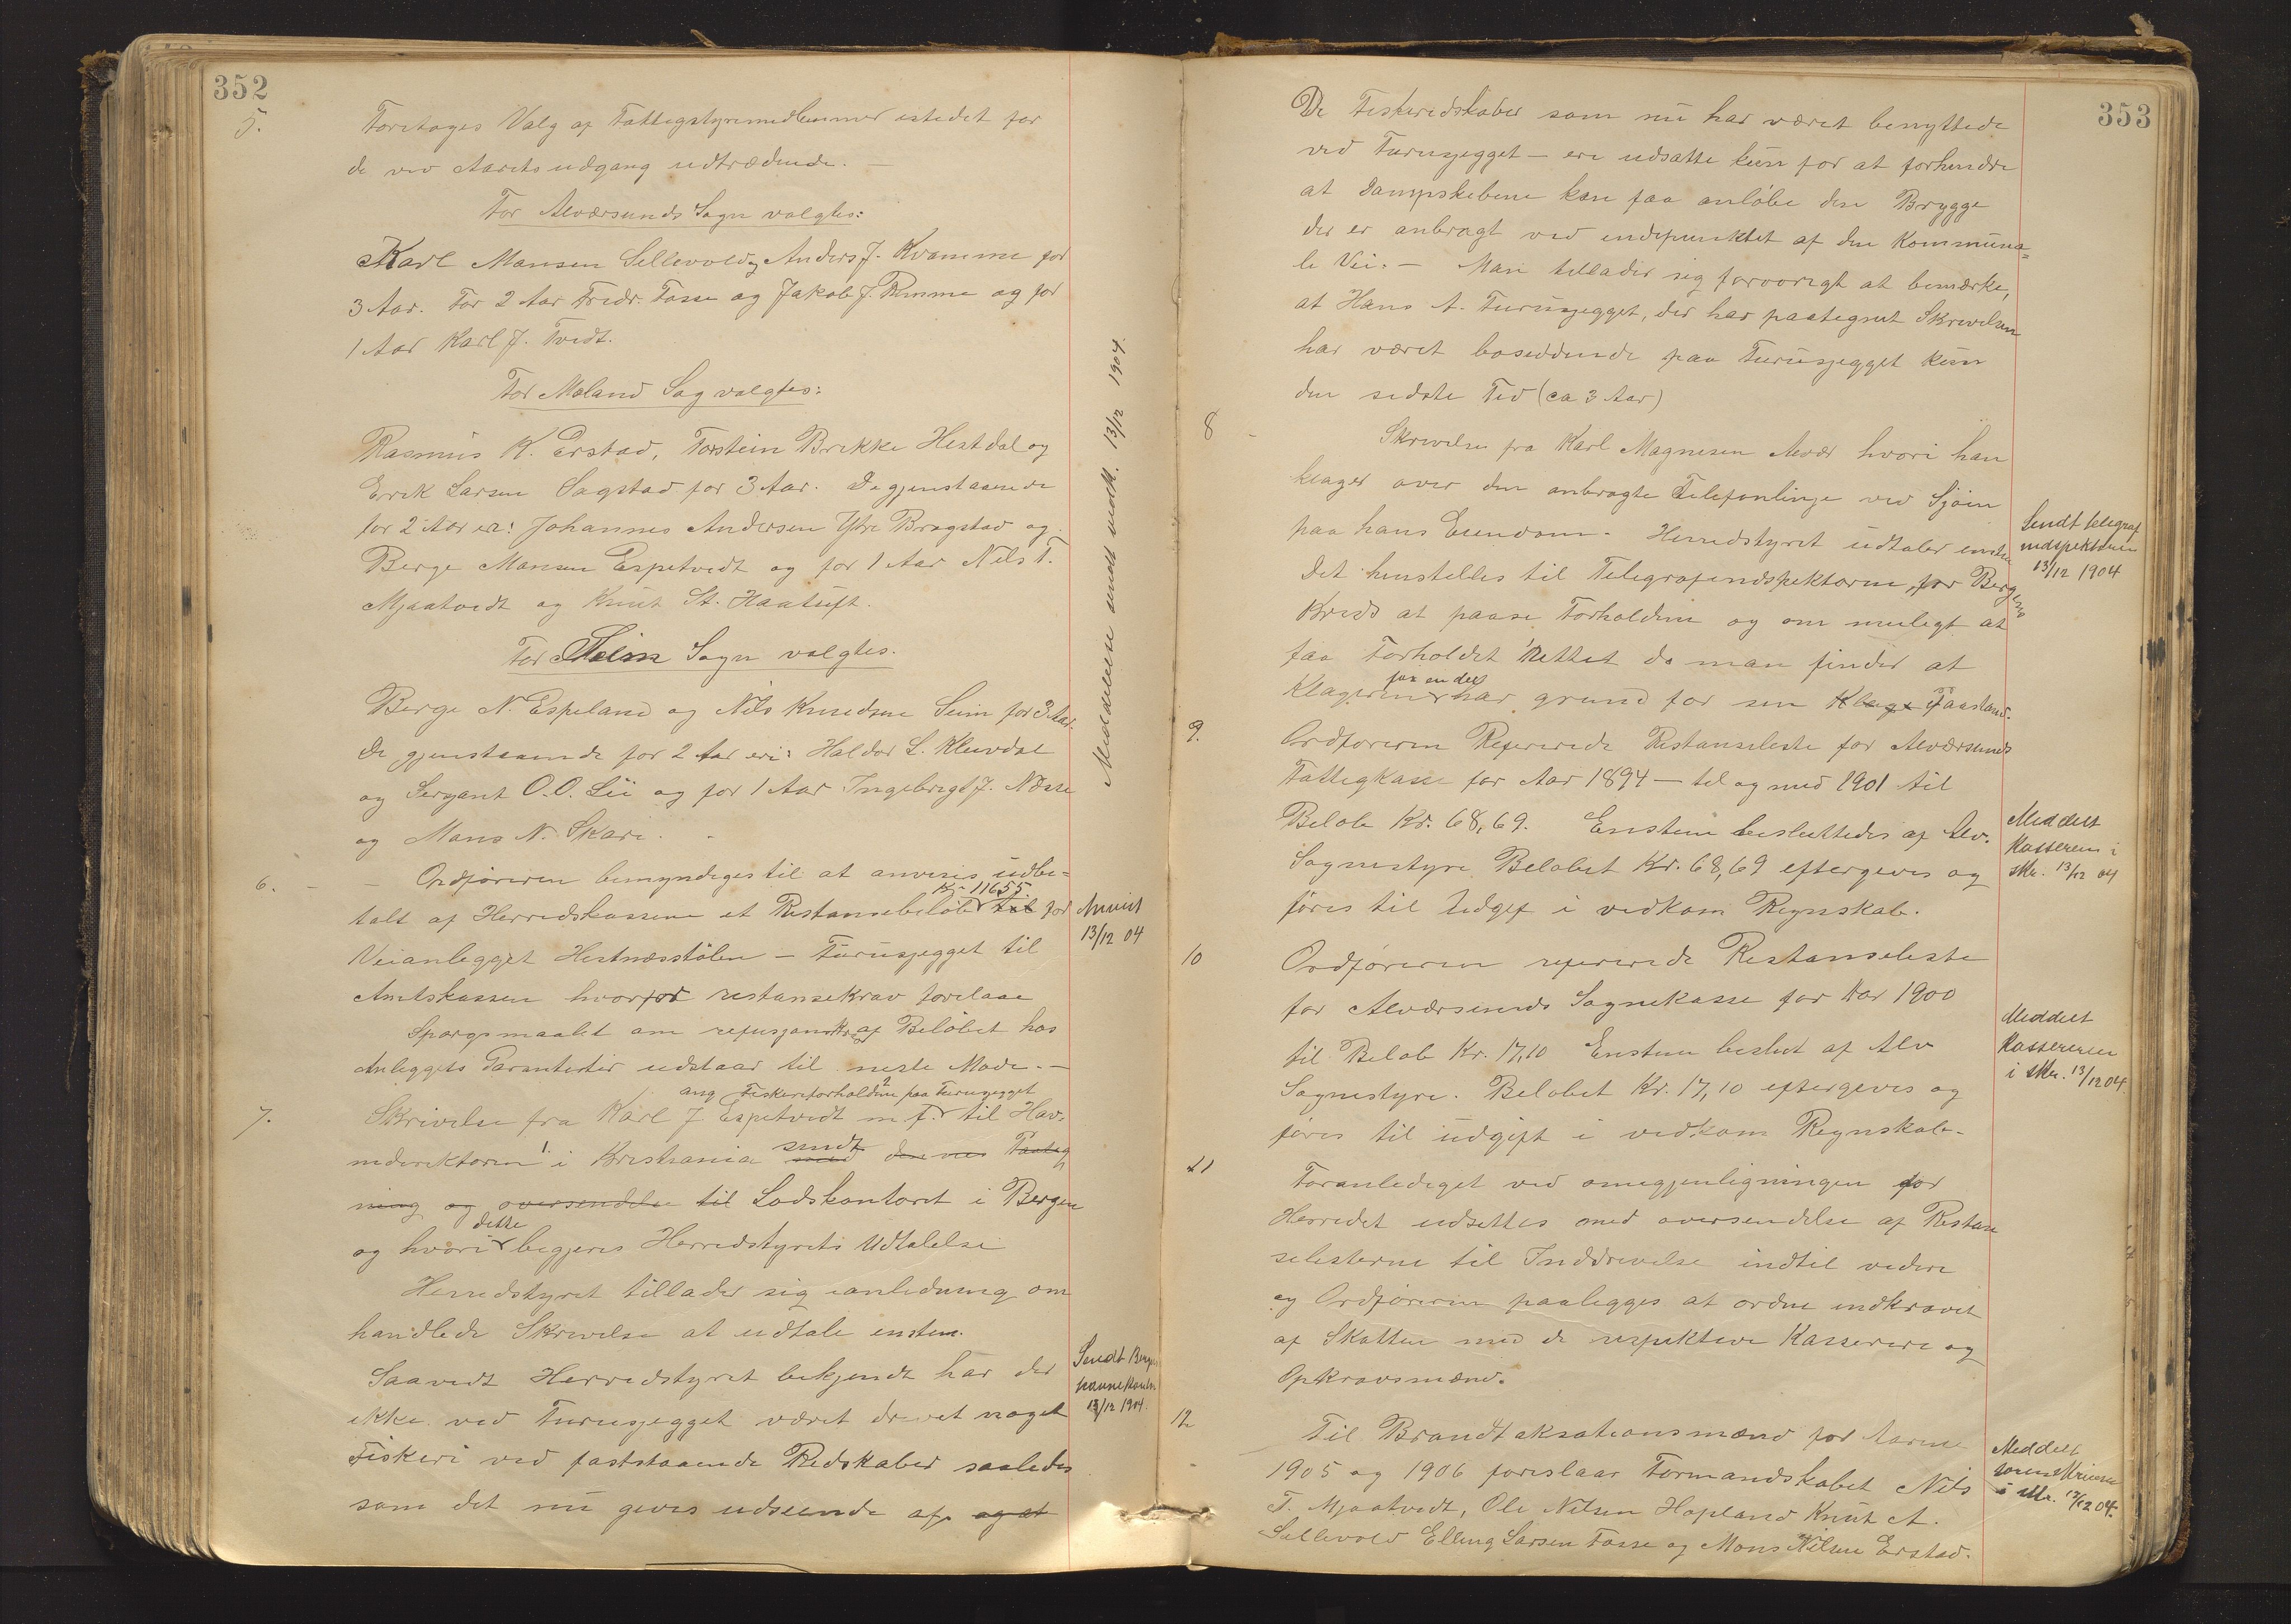 352
5.
Foretoges Valg af Fattigstyremedlemmer istedet for
de ved Aarets udgang udtrædende. —
For Alværsunds Sogn valgtes:
Karl Monsen Sellevold og Anders J. Kvamme for
3 Aar. For 2 Aar Fredr. Fosse og Jakob J. Remme og for
1 Aar Karl J. Tvedt.
For Meland Sog valgtes:
Rasmus K. Erstad, Torstein Brekke Hestdal og
Erik Larsen Sagstad for 3 Aar. De gjenstaaende
for 2 Aar er: Johannes Andersen Ytre Brogstad og
Berge Monsen Espetvedt og for 1 Aar Nils T.
Mjaatvedt og Knut St. Haatuft.
For Seim Sogn valgtes.
Berge N. Espeland og Nils Knudsen Seim for 3 Aar.
De gjenstaaende for 2 Aar eri: Haldor L. Kleivdal
og Sergant O.O. Lii og for 1 Aar Ingebrigt J. Nesse
og Mons N. Skare.
Meddelelse sendt vedk. 13/12 1904.
6. — — Ordføreren bemyndiges til at anvises udbe=
Kr 116,55.
talt af Herredskassene et Restansebeløb til for
Anvist
13/12 04
Veianlegget Hestnesstølen – Turusjegget til
Amtskassen hvorfor restansekrav forelaa
Spørgsmaalet om refusjons Kr. af Beløbet hos
Anleggets Garantister udstaar til neste Møde. —
ang Fiskeriforholdene paa Turusjegget
7.
Skrivelse fra Karl J Espetvedt m. fl. til Hav-
nedirektøren i Kristiania sendt med dennes Paateg
ning og oversendelse til Lodskontoret i Bergen
dette
og hvori begjeres Herredstyrets Udtalelse
Herredstyret tillader sig ianledning om
handlede Skrivelse at udtale enstem.
Saavidt Herredstyret bekjendt har der
Sendt Berg.
havnekontr.
13/12 1904.
ikke ved Turusjegget været drevet noget
Fiskeri ved faststaaende Redskaber saaledes
som det nu gives udseende af. og at
353
De Fiskeridskaber som nu har været benyttede
ved Turusjegget – ere udsatte kun for at forhindre
at Dampskibene kan faa anløbe den Brygge
der er anbragt ved endepunktet af den Kommuna=
le Vei. — Man tillader sig forøvrigt at bemærke,
at Hans A. Turusjegget, der har paategnet Skrivelsen
har været boseddende paa Turusjegget kun
den sidste Tid (ca 3 Aar)
8 -
Skrivelse fra Karl Magnesen Alvær hvori han
klager over den anbragte Telefonlinje ved Sjøen
paa hans Eiendom. Herredstyret udtaler enstem
Sendt telegraf
indspektøren
13/12 1904
Det henstilles til Telegrafindspektøren for Bergens
Kreds at paase Forholdene og om muligt at
faa Forholdet rettet da man finder at
for en del
Klageren har grund for sin Klage Paastand.
9.
Ordføreren Refererede Restanseliste for Alværsunds
Fattigkasse for Aar 1894 – til og med 1901 til
Beløb Kr. 68,69. Enstem besluttedes af Alv.
Meddelt
Kassereren i
skr. 13/12 04
Sognestyre Beløbet Kr. 68,69 eftergives og
føres til Udgift i vedkom Regnskab.
10
Ordføreren refererede Restanseliste
for Alværsunds Sognekasse for Aar 1900
til Beløb Kr. 17,10 Enstem beslut af Alv
Meddelt
Kassereren
i skr. 13/12 04.
Sognestyre. Beløbet Kr. 17,10 eftergives og
føres til udgift i vedkom Regnskab.
11
Foranlediget ved omegjenligningen for
Herredet udsettes med oversendelse af Restan
selisterne til Inddrivelse indtil videre
og Ordføreren paalegges at ordne indkravet
af Skatten med de respektive Kasserere og
Opkravsmænd.
12
Til Brandtaksationsmænd for Aarene
1905 og 1906 foreslaar Formandskabet Nils
Meddelt
sorenskriveren
i skr. 13/12 04.
T. Mjaatvedt, Ole Nilsen Hopland Knut A.
Sellevold Elling Larsen Fosse og Mons Nilsen Erstad.